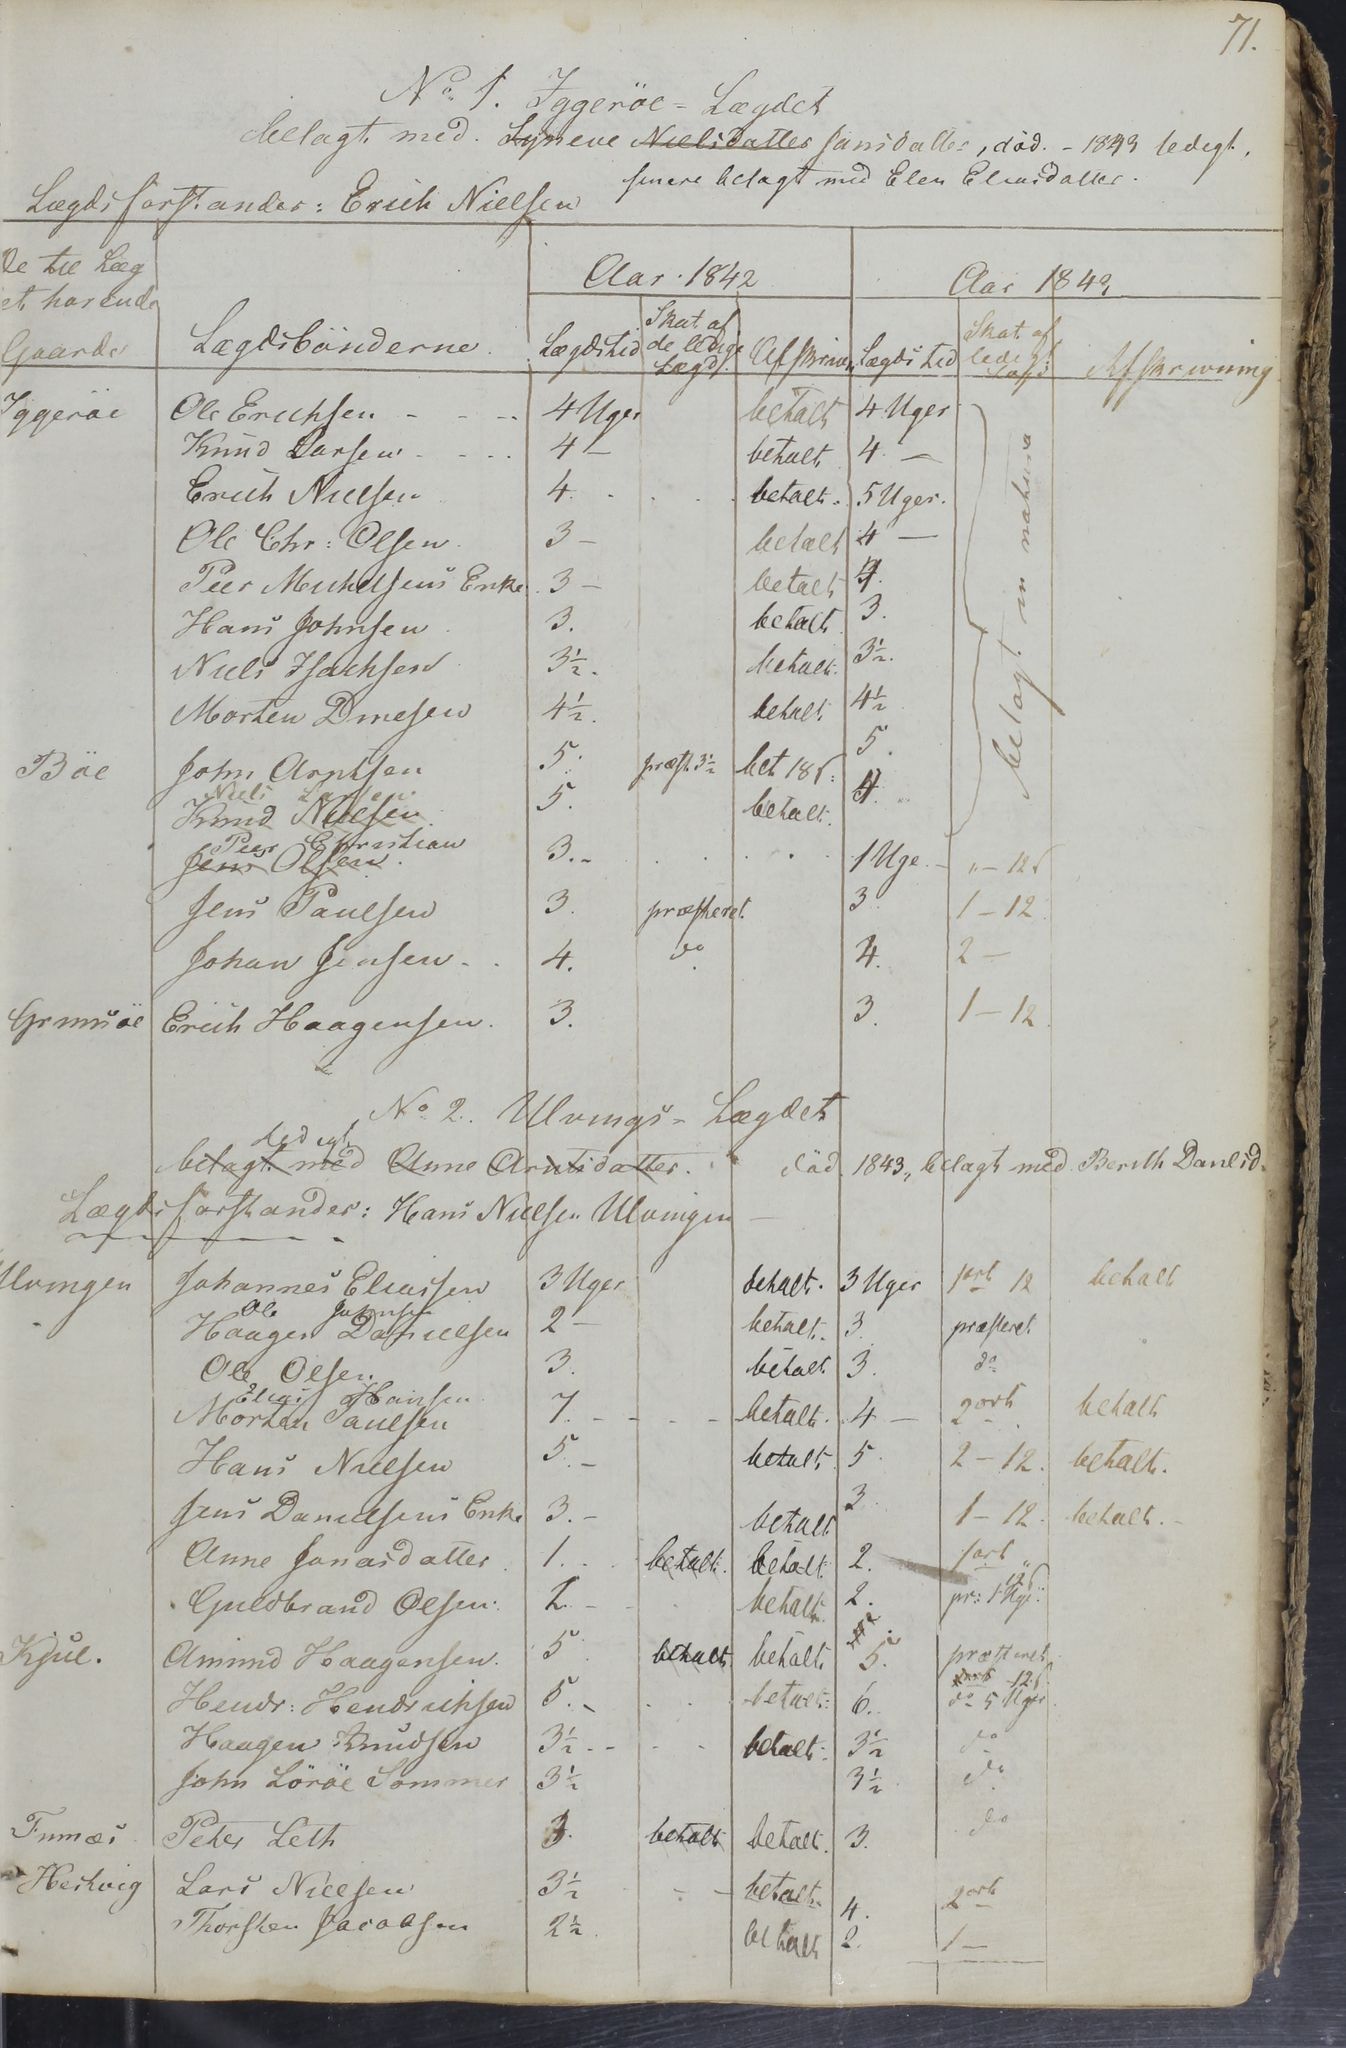 71.
No 1. Iggeröe - Lægdet
belagt med Nielsdatter Jansdatter, död. - 1843 ledigt,
senere belagt med Elen Eliasdatter.
Lægdsforstander: Erich Nielsen
De til Læg
et hørende
Gaarde
Lægdsbönderne
Aar 1842
Aar 1843
Lægdstid
Skat af
de ledige
Lægd.
Afskrivn
Lægdstid
Skat af
ledigt
Lægd
Afskrivning
Iggeröe Ole Erichsen - - - 4 Uger betalt 4 Uger
Knud Larsen - - - 4 - betalt 4 -
Erich Nielsen 4. betalt. 5 Uger.
Ole Chr: Olsen 3 - betalt 4 -
Peer Michelsens Enke 3 - betalt 4.
Hans Johnsen 3. betalt 3.
Niels Isachsen 3½. betalt. 3½.
Morten Dinesen 4½. betalt 4½
belagt in natura
Böe John Arntsen 5. præst. 3½ bet 18 ß. 5.
Niels Larsen
Knud Nielsen 5. betalt. 4.
Peer Christian
Jens Olsen 3. - 1 Uge - " - 12 ß
Jens Paulsen 3. præsteret 3. 1 - 12
Johan Jensen - 4. do 4. 2 -
Grunsöe Erich Haagensen. 3. 3. 1 - 12
No 2. Ulvings - Lægdet
ledigt
belagt med Anne Arntsdatter. död 1843, belagt med Berith Danlsd.
Lægdsforstander: Hans Nielsen Ulvingen -
Ulvingen Johannes Eliassen 3 Uger betalt. 3 Uger 1 ort 12 betalt
Ole Johnsen
Haagen Danielsen 2 - betalt. 3. præsteret
Ole Olsen 3. betalt 3. do
Elias Hansen
Morten Paulsen 7. - - - betalt. 4 - 2 ort betalt
Hans Nielsen 5. - betalt. 5. 2 - 12. betalt.
Jens Danielsens Enke 3. - betalt 3. 1 - 12. betalt. -
Anne Jonasdatter 1. betalt. betalt. 2. 1 ort "
12 ß
Guldbrand Olsen. 2. - betalt. 2. pr: 1 Uge.
Kjul. Amund Haagensen. 5. betalt betalt. 5. præsteret
12 ß
Hendr: Hendrichsen 5. - betalt. 6. do 5 Uger
Haagen Knudsen 3½ - - betalt. 3½ do
John Löröe Sommer 3½ 3½ do
Finnæs Peter Leth 3. betalt betalt. 3. do
Hestvig Lars Nielsen 3½ - - betalt. 4. 2 ort
Thorsten Jacobsen 2½. betalt 2. 1 -